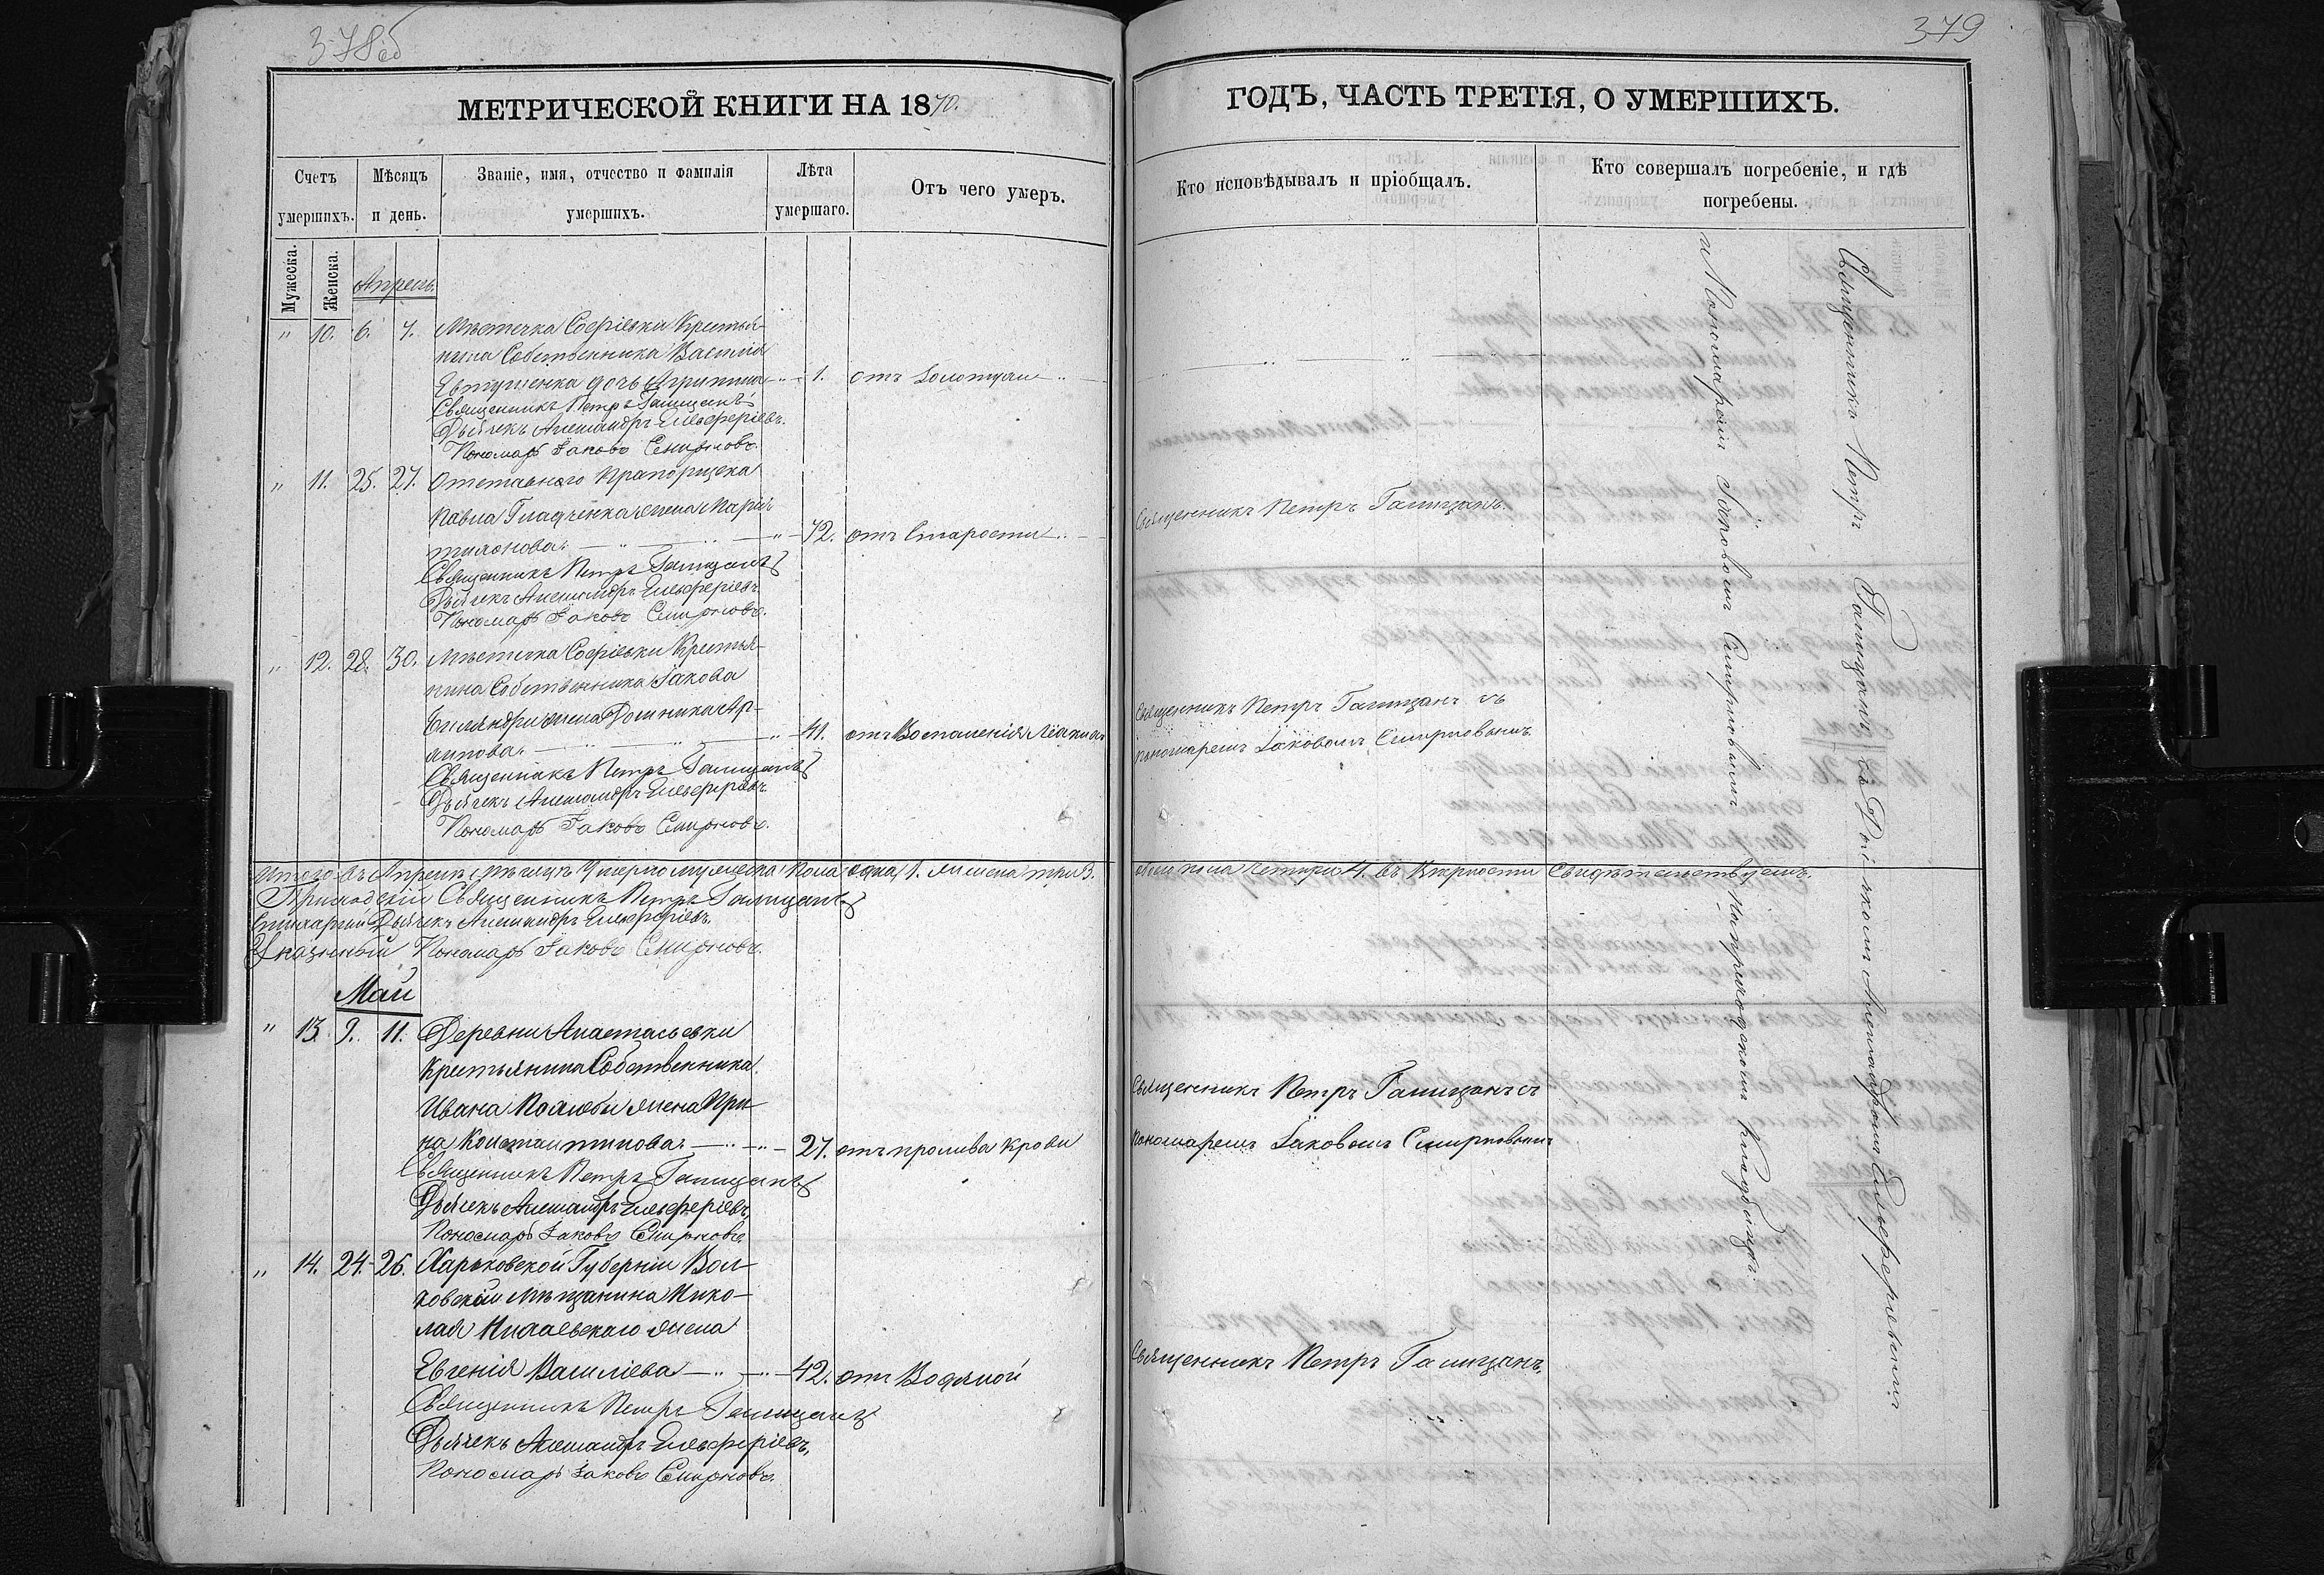 378об
МЕТРИЧЕСКОЙ КНИГИ НА 1870.
Счетъ умершихъ.
Мѣсяцъ и день.
Званіе, имя, отчество и фамилія умершихъ.
Лѣта умершаго.
Отъ чего умеръ.
Мужеска.
Женска.
Апрель.
" 10. 6. 7. Мѣстечка Софіевки Крестья-
нина Собственника Василія
Евтушенка дочь Агрипина 1. отъ Золотухи
Священникъ Петръ Галицанъ
Дьячекъ Александръ Елевферіевъ.
Пономарь Іаковъ Смирновъ.
" 11. 25. 27. Отставного Прапорщека
Павла Гладченка жена Марія
72. отъ Старости
Священникъ Петръ Галицанъ
Дьячекъ Александръ Елевферіевъ.
Пономарь Іаковъ Смирновъ.
" 12. 28. 30. Мѣстечка Софіевки Крестья-
нина Собственника Іакова
жена Домника Ар-
41. отъ Воспаленія
Священникъ Петръ Галицанъ
Дьячекъ Александръ Елевферіевъ.
Пономарь Іаковъ Смирновъ.
Итого въ Апрелѣ мѣсяцѣ Умерло мужеска пола одна 1. женска три 3.
Приходскій Священникъ Петръ Галицанъ
Стихарный Дьячекъ Александръ Елевферіевъ.
Указный Пономарь Іаковъ Смирновъ.
Май
" 13. 9. 11. Деревни Анастасьевки
Крестьянина Собственника
Ивана жена Ири-
на Константинова 27. отъ пролива Крови
Священникъ Петръ Галицанъ
Дьячекъ Александръ Елевферіевъ,
Пономарь Іаковъ Смирновъ.
" 14. 24. 26. Харьковской Губерніи Вол-
ковскій мѣщанина Нико-
лая жена
Евгенія Василіева 42. отъ Водяной
Священникъ Петръ Галицанъ
Дьячекъ Александръ Елевферіевъ,
Пономарь Іаковъ Смирновъ.
379
ГОДЪ, ЧАСТЬ ТРЕТІЯ, О УМЕРШИХЪ.
Кто исповѣдывалъ и пріобщалъ.
Кто совершалъ погребеніе, и гдѣ погребены.
Священникъ Петръ Галицанъ.
Священникъ Петръ Галицанъ съ
пономаремъ Іаковомъ Смирновымъ
обоего пола четыре 4. въ Вѣрности Свидѣтельствуемъ.
Священникъ Петръ Галицанъ съ
пономаремъ Іаковомъ Смирновымъ
Священникъ Петръ Галицанъ.
Священникъ Петръ Галицанъ съ Дьячкомъ Александромъ Елевферіевымъ
и Пономаремъ Іаковомъ Смирновымъ на приходскомъ кладбищѣ.